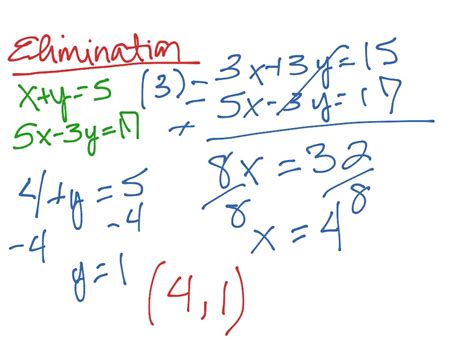 Elimination
x+y=5 (3) = 3x+3y=15
5x-3y=17 = 5x-3y=17
+
8x=32
8 8
x=4
4+y=5
-4 -4
y=1
(4,1)